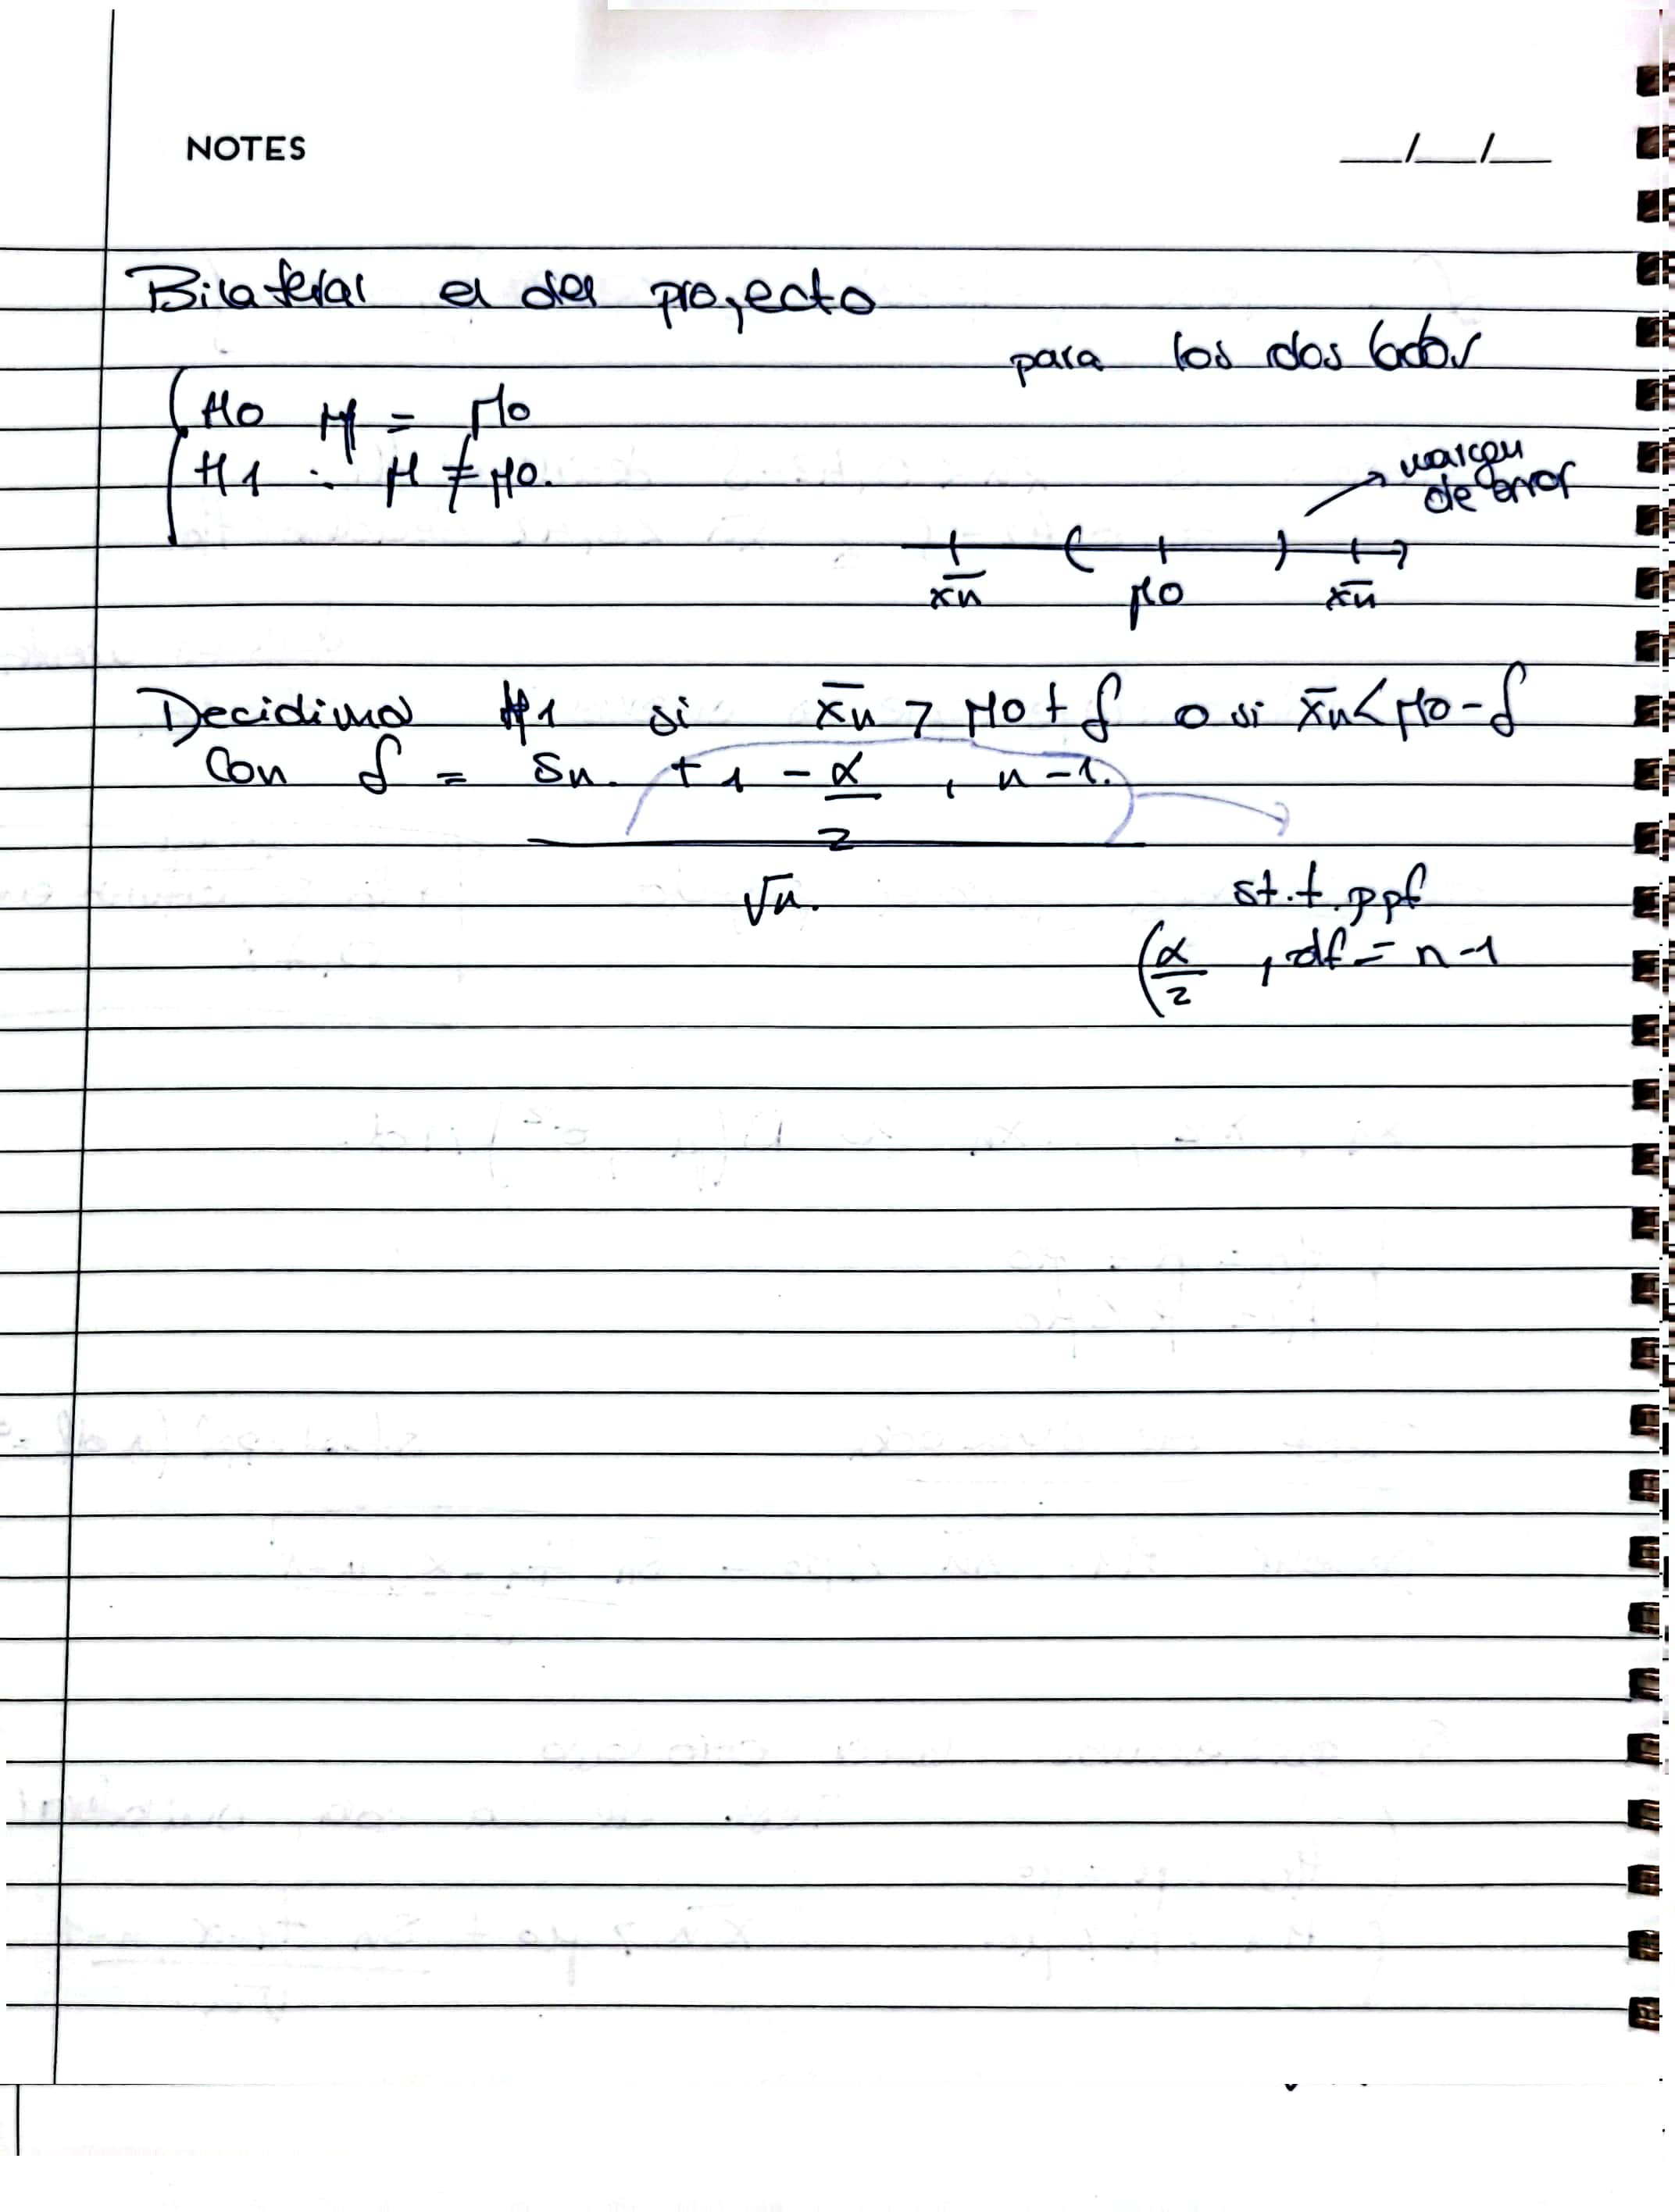 NOTES
__/__/__
Bilateral el del proyecto
para los dos lados
H0 μ = μ0
H1 : μ ≠ μ0.
margen
de error
x̄n μ0 x̄n
Decidimos H1 si x̄n > μ0 + δ o si x̄n < μ0 - δ
Con δ = Sn. t 1 - α/2 , n-1.
√n.
st.t.ppf
(α/2 , df = n-1